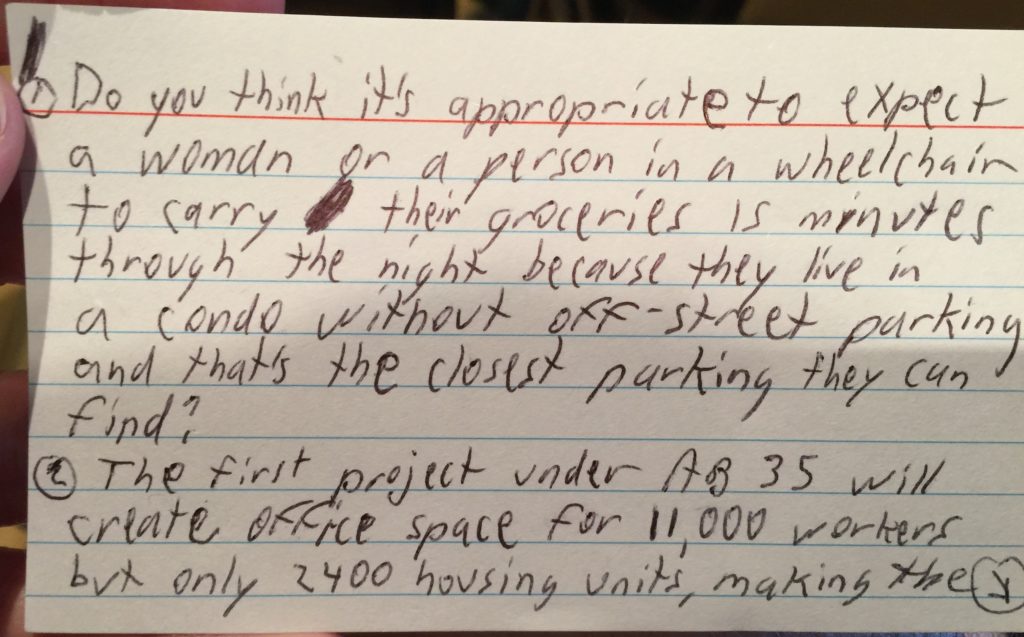 ① Do you think it's appropriate to expect
a woman or a person in a wheelchair
to carry their groceries 15 minutes
through the night because they live in
a condo without off-street parking
and that's the closest parking they can
find?
② The first project under AB 35 will
create office space for 11,000 workers
but only 2400 housing units, making the